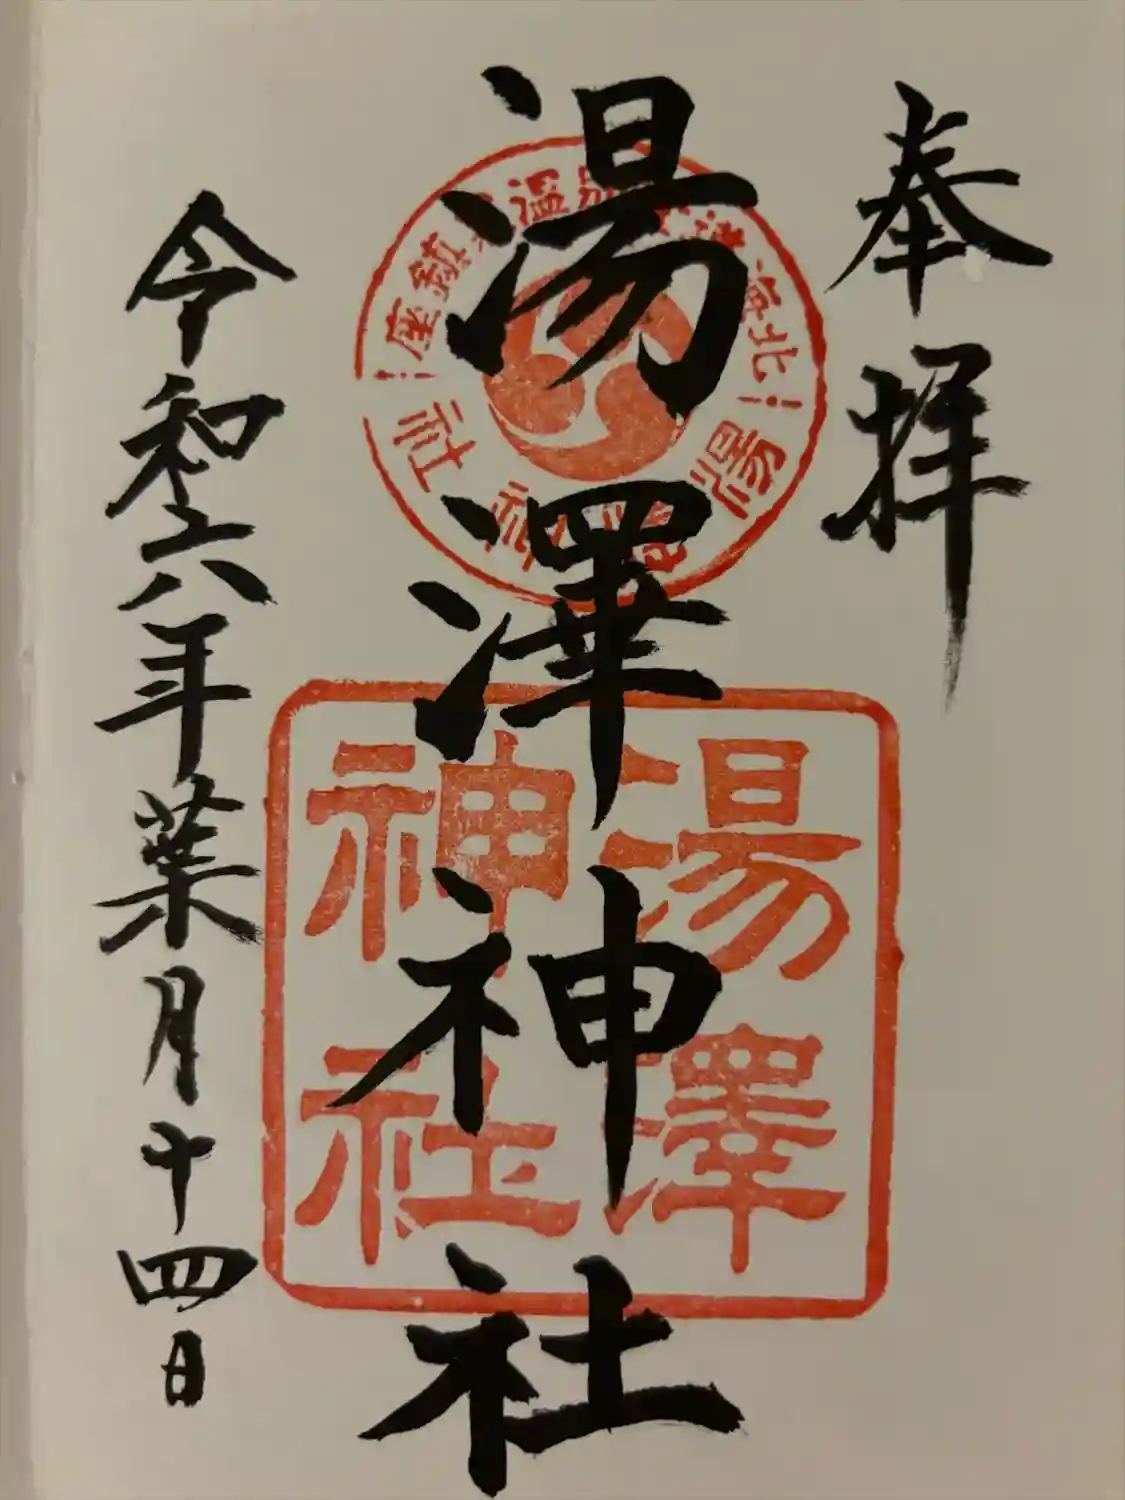 奉拝
湯澤神社
令和六年葉月十四日
北海道
温
鎮座
湯澤神社
湯澤
神社